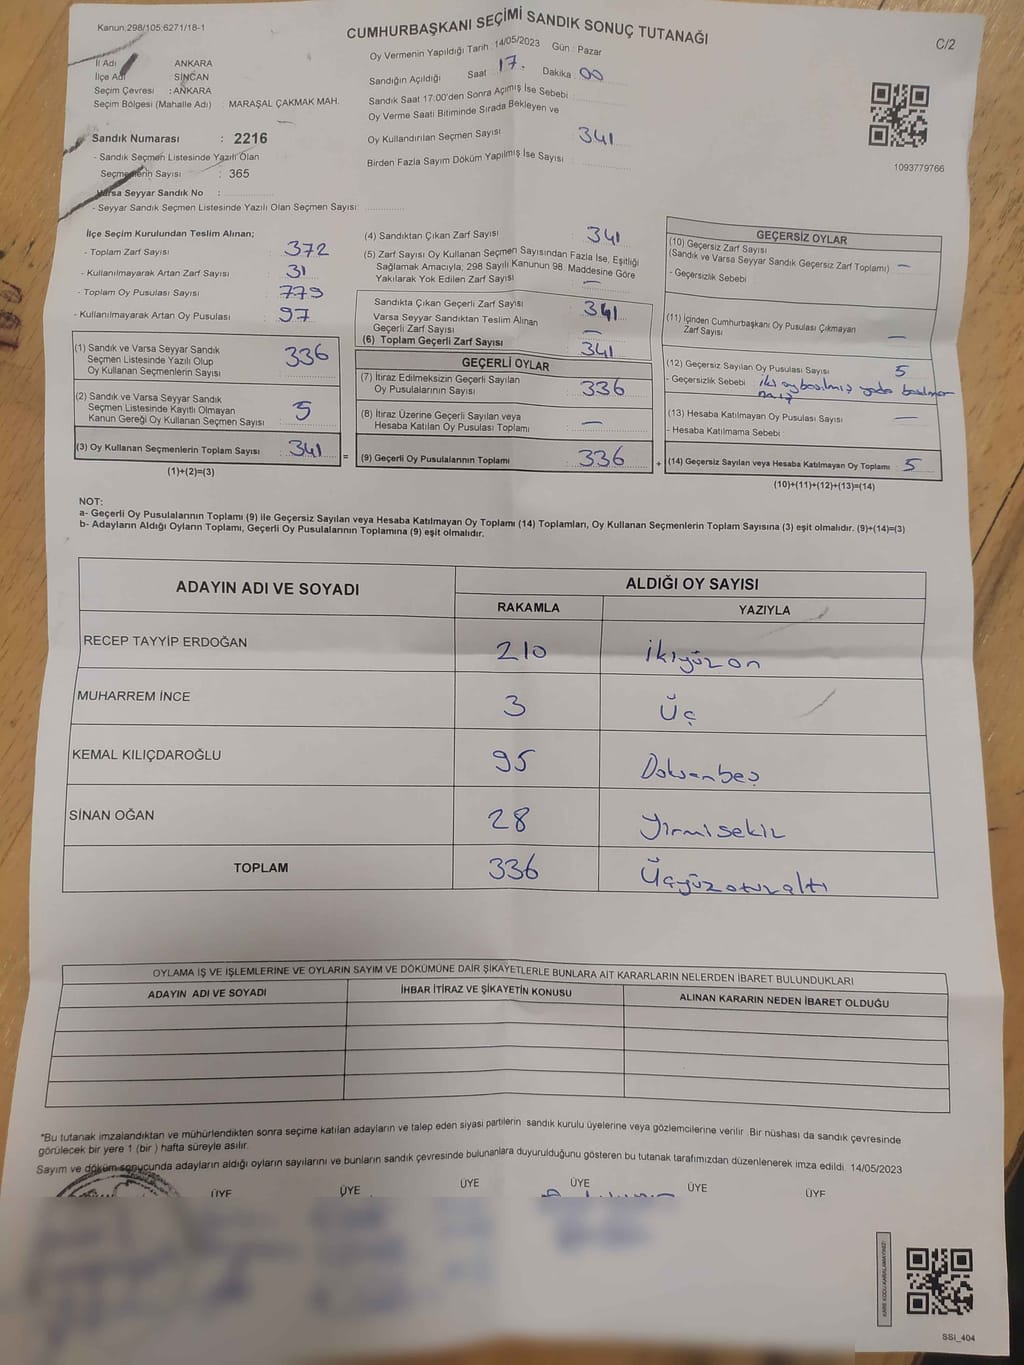 Kanun.298/105.6271/18-1
CUMHURBAŞKANI SEÇİMİ SANDIK SONUÇ TUTANAĞI
C/2
İl Adı : ANKARA
İlçe Adı : SİNCAN
Seçim Çevresi : ANKARA
Seçim Bölgesi (Mahalle Adı) : MARAŞAL ÇAKMAK MAH.
Sandık Numarası : 2216
- Sandık Seçmen Listesinde Yazılı Olan
Seçmenlerin Sayısı : 365
Varsa Seyyar Sandık No :
- Seyyar Sandık Seçmen Listesinde Yazılı Olan Seçmen Sayısı:
Oy Vermenin Yapıldığı Tarih : 14/05/2023 Gün : Pazar
Sandığın Açıldığı Saat 17. Dakika 00
Sandık Saat 17:00'den Sonra Açılmış İse Sebebi
Oy Verme Saati Bitiminde Sırada Bekleyen ve
Oy Kullandırılan Seçmen Sayısı 341
Birden Fazla Sayım Döküm Yapılmış İse Sayısı
1093779766
İlçe Seçim Kurulundan Teslim Alınan;
- Toplam Zarf Sayısı : 372
- Kullanılmayarak Artan Zarf Sayısı : 31
- Toplam Oy Pusulası Sayısı : 779
- Kullanılmayarak Artan Oy Pusulası : 97
(1) Sandık ve Varsa Seyyar Sandık
Seçmen Listesinde Yazılı Olup
Oy Kullanan Seçmenlerin Sayısı : 336
(2) Sandık ve Varsa Seyyar Sandık
Seçmen Listesinde Kayıtlı Olmayan
Kanun Gereği Oy Kullanan Seçmen Sayısı : 5
(3) Oy Kullanan Seçmenlerin Toplam Sayısı : 341
(1)+(2)=(3)
=
(4) Sandıktan Çıkan Zarf Sayısı : 341
(5) Zarf Sayısı Oy Kullanan Seçmen Sayısından Fazla İse, Eşitliği
Sağlamak Amacıyla; 298 Sayılı Kanunun 98. Maddesine Göre
Yakılarak Yok Edilen Zarf Sayısı : —
Sandıkta Çıkan Geçerli Zarf Sayısı : 341
Varsa Seyyar Sandıktan Teslim Alınan
Geçerli Zarf Sayısı : —
(6) Toplam Geçerli Zarf Sayısı : 341
GEÇERLİ OYLAR
(7) İtiraz Edilmeksizin Geçerli Sayılan
Oy Pusulalarının Sayısı : 336
(8) İtiraz Üzerine Geçerli Sayılan veya
Hesaba Katılan Oy Pusulası Toplamı : —
(9) Geçerli Oy Pusulalarının Toplamı : 336
+
GEÇERSİZ OYLAR
(10) Geçersiz Zarf Sayısı
(Sandık ve Varsa Seyyar Sandık Geçersiz Zarf Toplamı) —
- Geçersizlik Sebebi
(11) İçinden Cumhurbaşkanı Oy Pusulası Çıkmayan
Zarf Sayısı —
(12) Geçersiz Sayılan Oy Pusulası Sayısı 5
- Geçersizlik Sebebi : iki oy basılmış yada basılmamış
(13) Hesaba Katılmayan Oy Pusulası Sayısı : —
- Hesaba Katılmama Sebebi
(14) Geçersiz Sayılan veya Hesaba Katılmayan Oy Toplamı : 5
(10)+(11)+(12)+(13)=(14)
NOT:
a- Geçerli Oy Pusulalarının Toplamı (9) ile Geçersiz Sayılan veya Hesaba Katılmayan Oy Toplamı (14) Toplamları, Oy Kullanan Seçmenlerin Toplam Sayısına (3) eşit olmalıdır. (9)+(14)=(3)
b- Adayların Aldığı Oyların Toplamı, Geçerli Oy Pusulalarının Toplamına (9) eşit olmalıdır.
ADAYIN ADI VE SOYADI ALDIĞI OY SAYISI
RAKAMLA YAZIYLA
RECEP TAYYİP ERDOĞAN 210 İkiyüzon
MUHARREM İNCE 3 Üç
KEMAL KILIÇDAROĞLU 95 Doksanbeş
SİNAN OĞAN 28 Yirmisekiz
TOPLAM 336 Üçyüzotuzaltı
OYLAMA İŞ VE İŞLEMLERİNE VE OYLARIN SAYIM VE DÖKÜMÜNE DAİR ŞİKAYETLERLE BUNLARA AİT KARARLARIN NELERDEN İBARET BULUNDUKLARI
ADAYIN ADI VE SOYADI İHBAR İTİRAZ VE ŞİKAYETİN KONUSU ALINAN KARARIN NEDEN İBARET OLDUĞU
*Bu tutanak imzalandıktan ve mühürlendikten sonra seçime katılan adayların ve talep eden siyasi partilerin sandık kurulu üyelerine veya gözlemcilerine verilir. Bir nüshası da sandık çevresinde
görülecek bir yere 1 (bir ) hafta süreyle asılır.
Sayım ve döküm sonucunda adayların aldığı oyların sayılarını ve bunların sandık çevresinde bulunanlara duyurulduğunu gösteren bu tutanak tarafımızdan düzenlenerek imza edildi. 14/05/2023
ÜYE ÜYE ÜYE ÜYE ÜYE ÜYE
KARE KODU KARALAMAYINIZ!
SSI_404